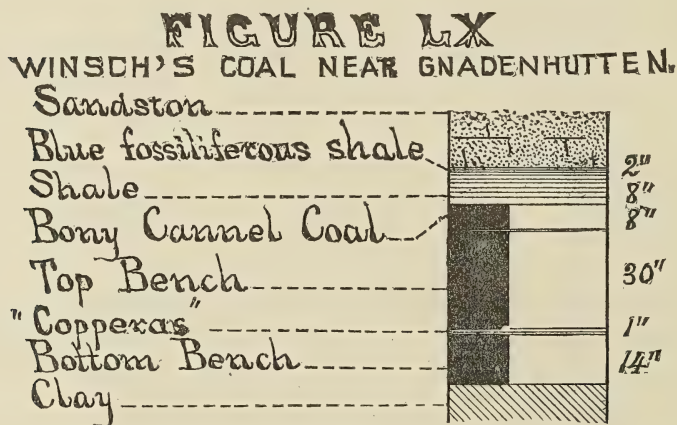 FIGURE LX
WINSCH'S COAL NEAR GNADENHUTTEN.
Sandston
Blue fossiliferous shale 2"
Shale 8"
Bony Cannel Coal 8"
Top Bench 30"
"Copperas" 1"
Bottom Bench 14"
Clay